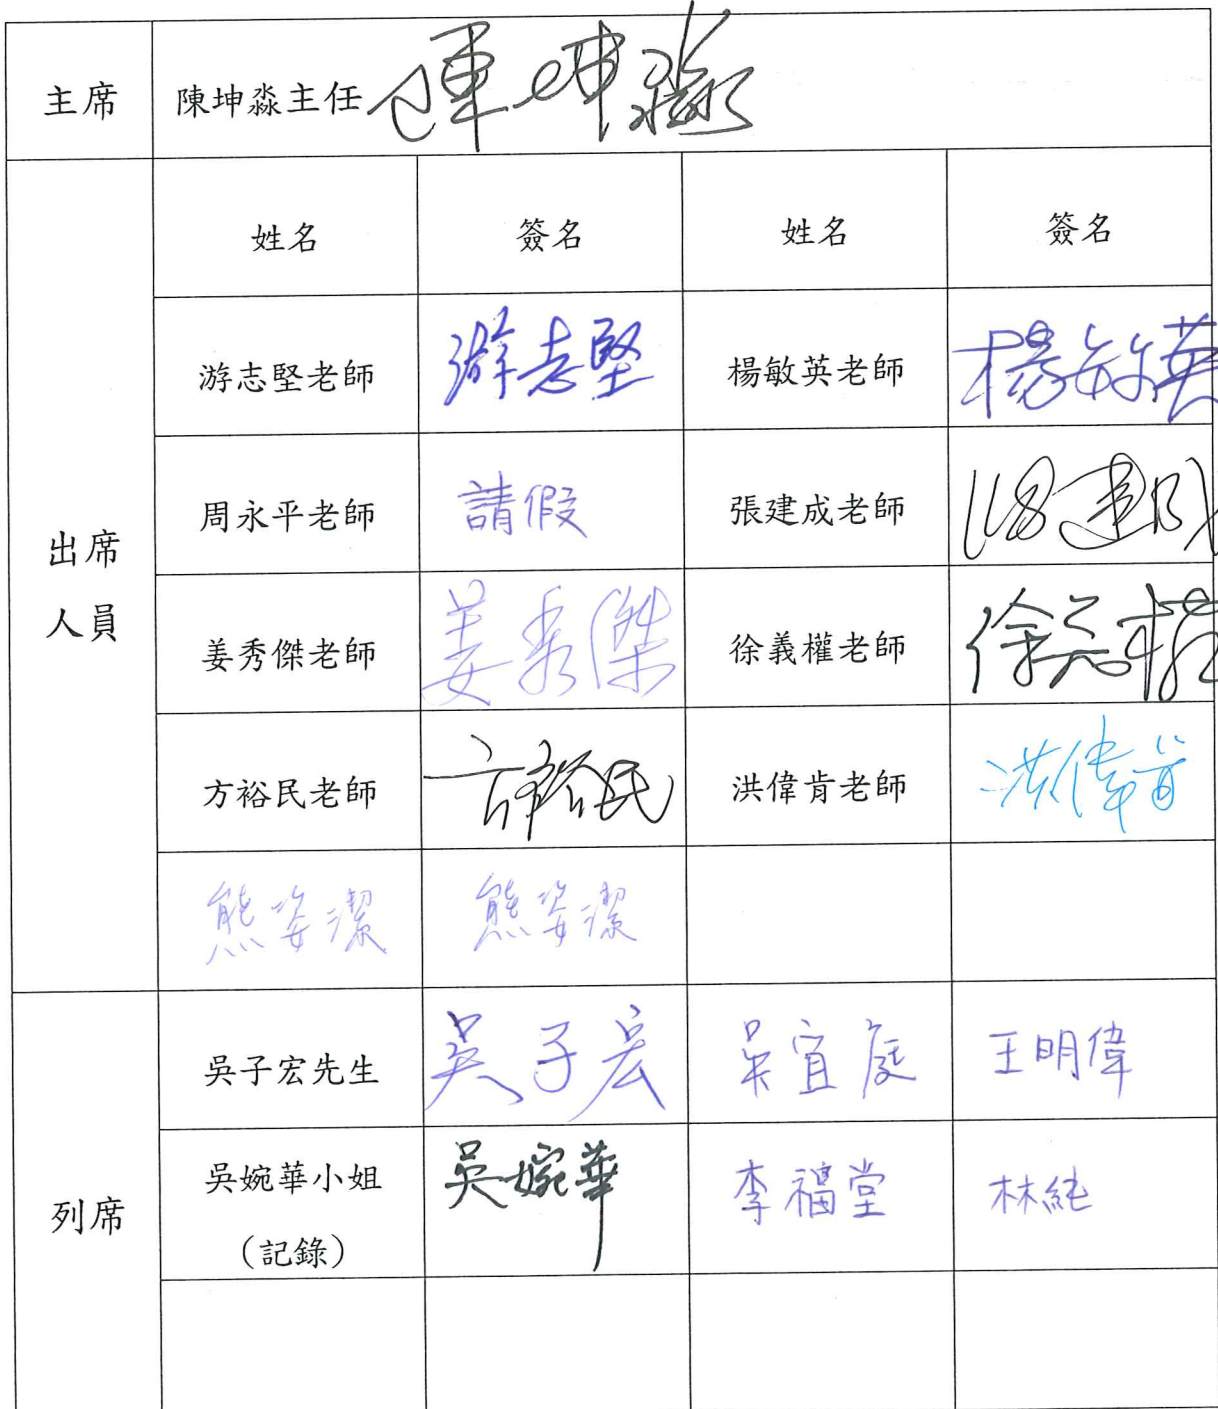 主席 陳坤淼主任 陳坤淼
姓名 簽名 姓名 簽名
游志堅老師 游志堅 楊敏英老師 楊敏英
周永平老師 請假 張建成老師 張建成
出席
人員
姜秀傑老師 姜秀傑 徐義權老師 徐義權
方裕民老師 方裕民 洪偉肯老師 洪偉肯
熊姿潔 熊姿潔
吳子宏先生 吳子宏 吳宜庭 王明偉
列席
吳婉華小姐 吳婉華 李福堂 林純
(記錄)